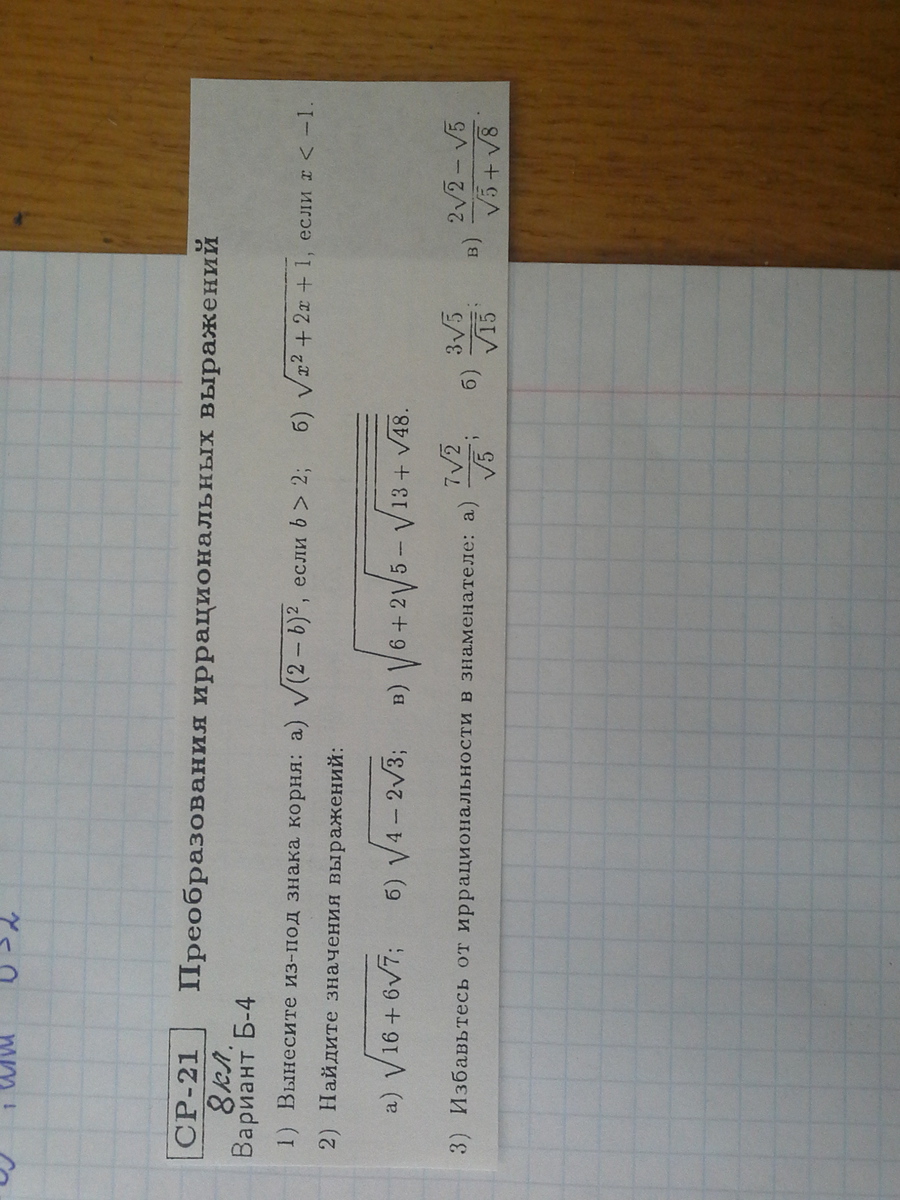 СР-21 Преобразования иррациональных выражений
8 кл.
Вариант Б-4
1) Вынесите из-под знака корня: а) √((2 − b)²), если b > 2; б) √(x² + 2x + 1), если x < −1.
2) Найдите значения выражений:
а) √(16 + 6√7); б) √(4 − 2√3); в) √(6 + 2√(5 − √(13 + √48))).
3) Избавьтесь от иррациональности в знаменателе: а) 7√2/√5; б) 3√5/√15; в) (2√2 − √5)/(√5 + √8).